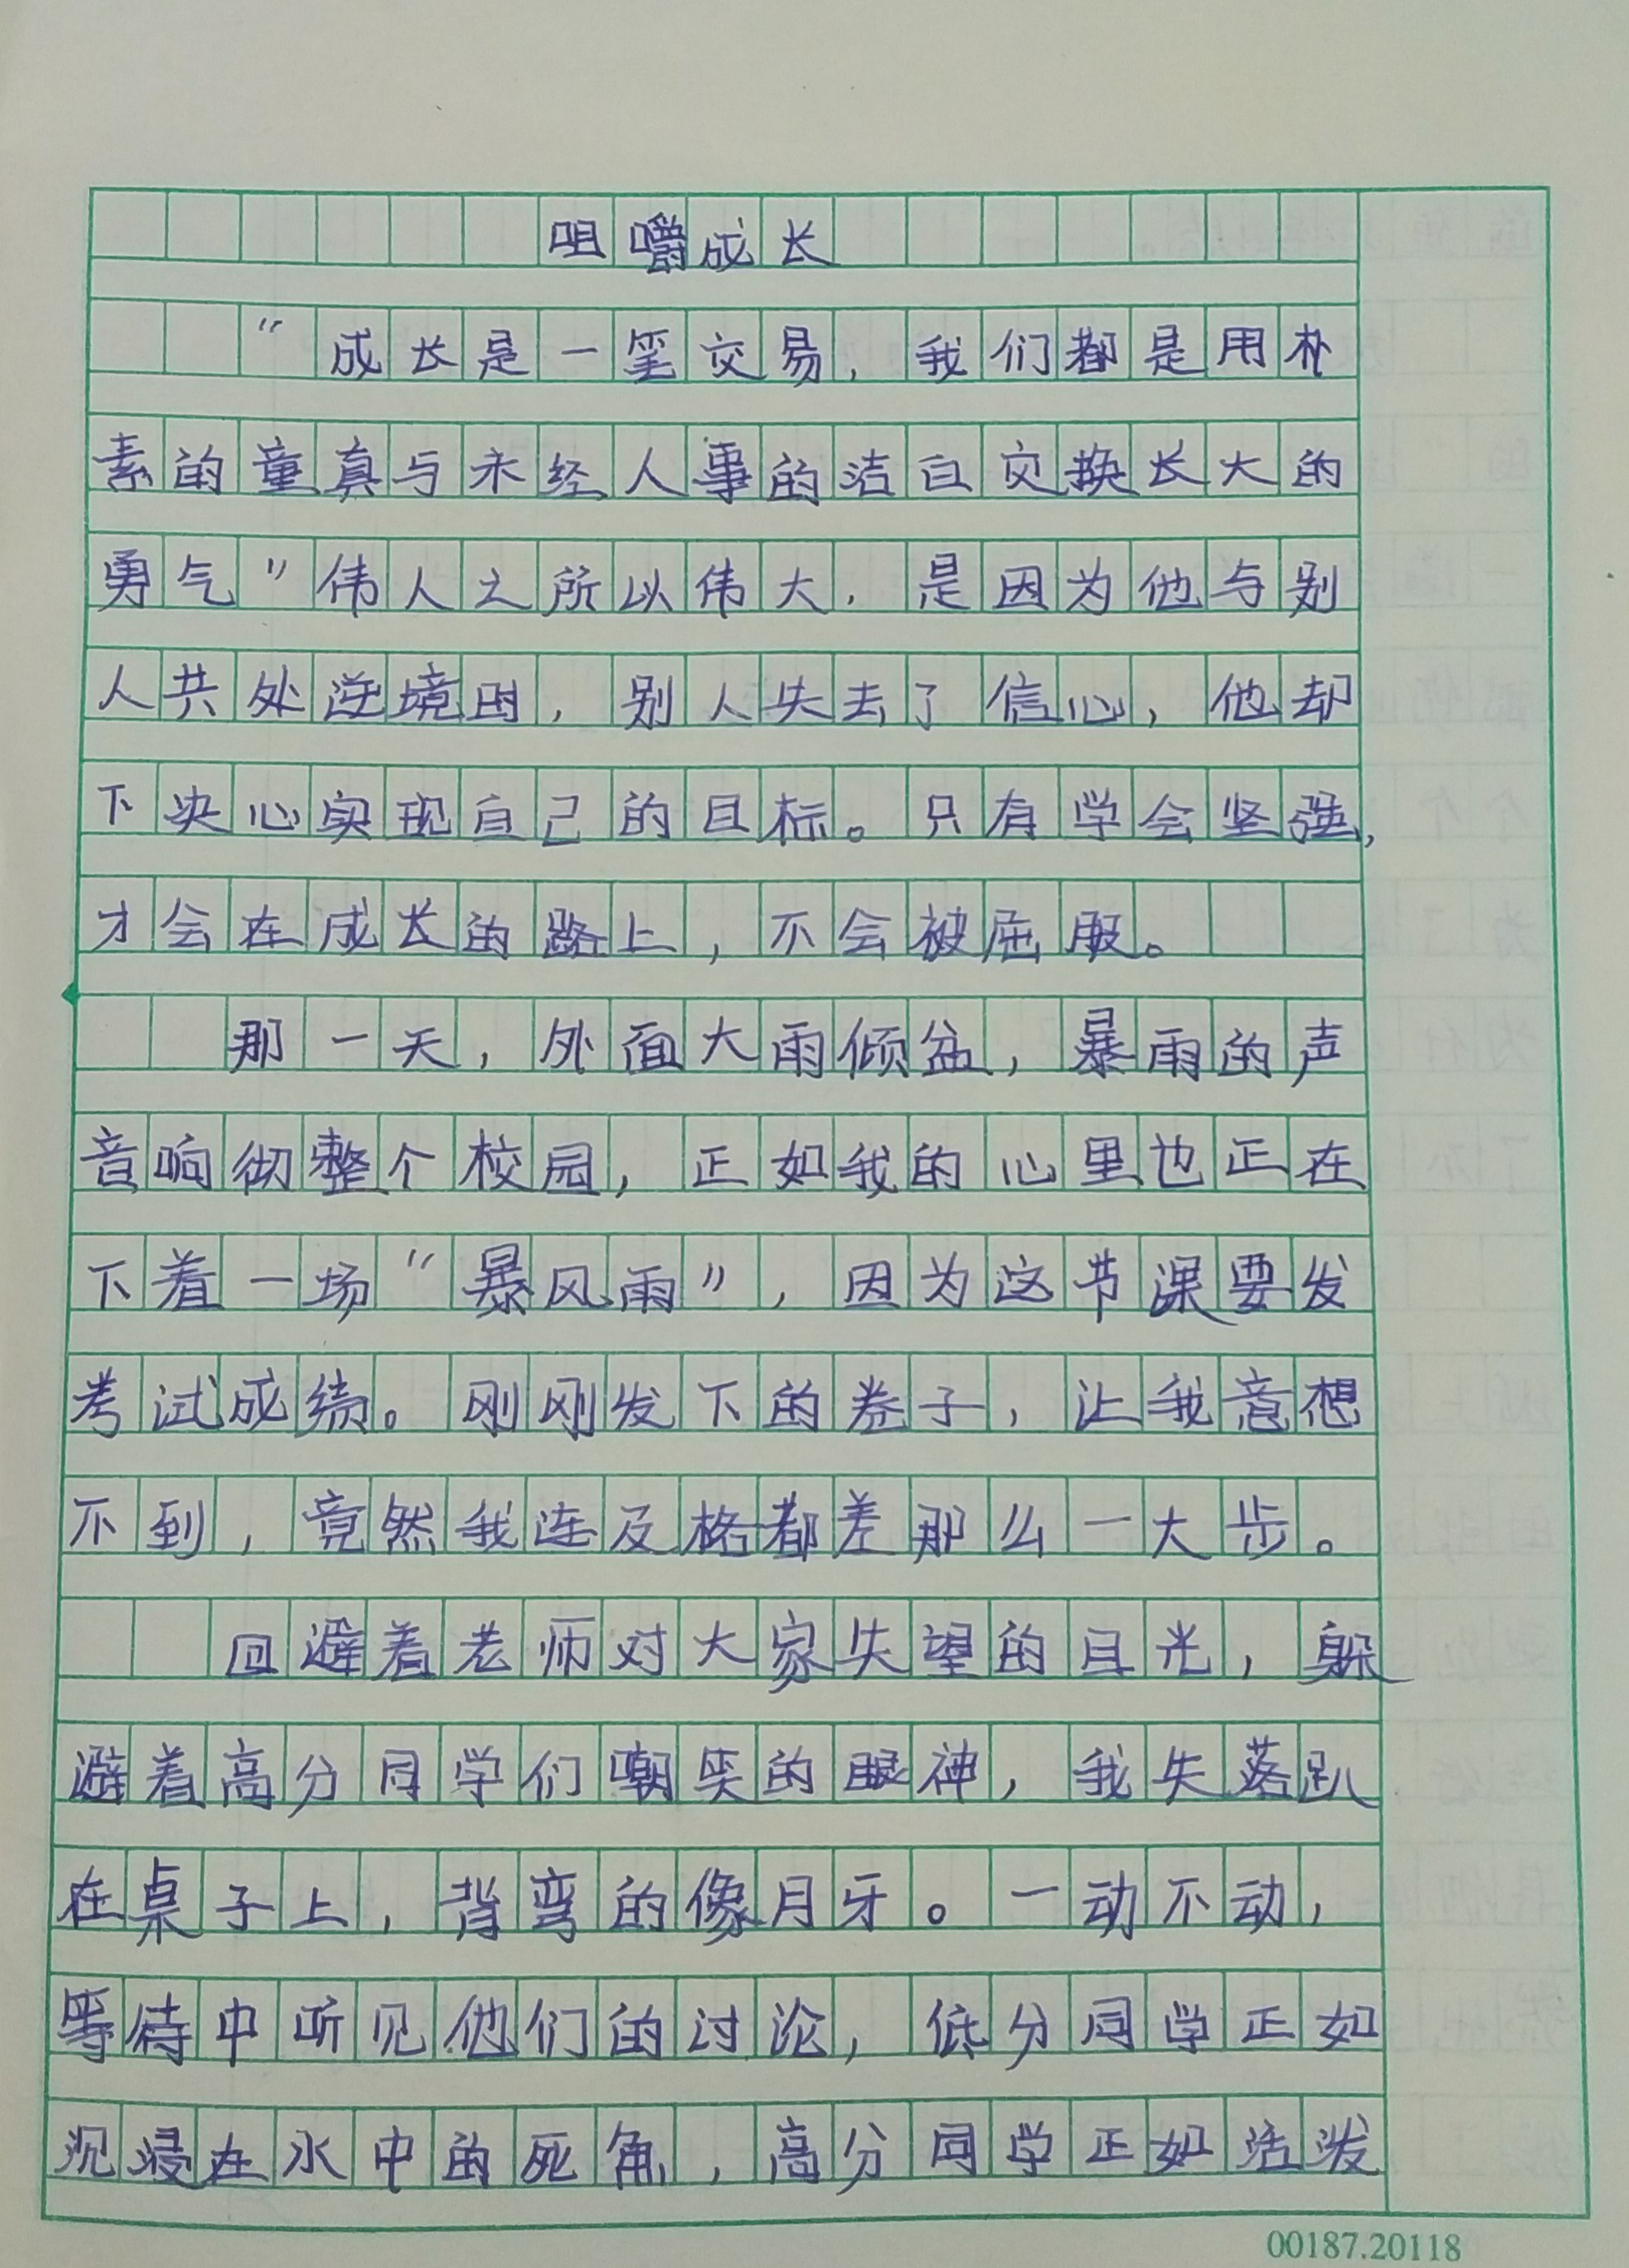 咀嚼成长
“成长是一笔交易，我们都是用朴
素的童真与未经人事的洁白交换长大的
勇气”伟人之所以伟大，是因为他与别
人共处逆境时，别人失去了信心，他却
下决心实现自己的目标。只有学会坚强，
才会在成长的路上，不会被屈服。
那一天，外面大雨倾盆，暴雨的声
音响彻整个校园，正如我的心里也正在
下着一场“暴风雨”，因为这节课要发
考试成绩。刚刚发下的卷子，让我意想
不到，竟然我连及格都差那么一大步。
回避着老师对大家失望的目光，躲
避着高分同学们嘲笑的眼神，我失落趴
在桌子上，背弯的像月牙。一动不动，
等待中听见他们的讨论，低分同学正如
沉浸在水中的死角，高分同学正如活泼
00187.20118